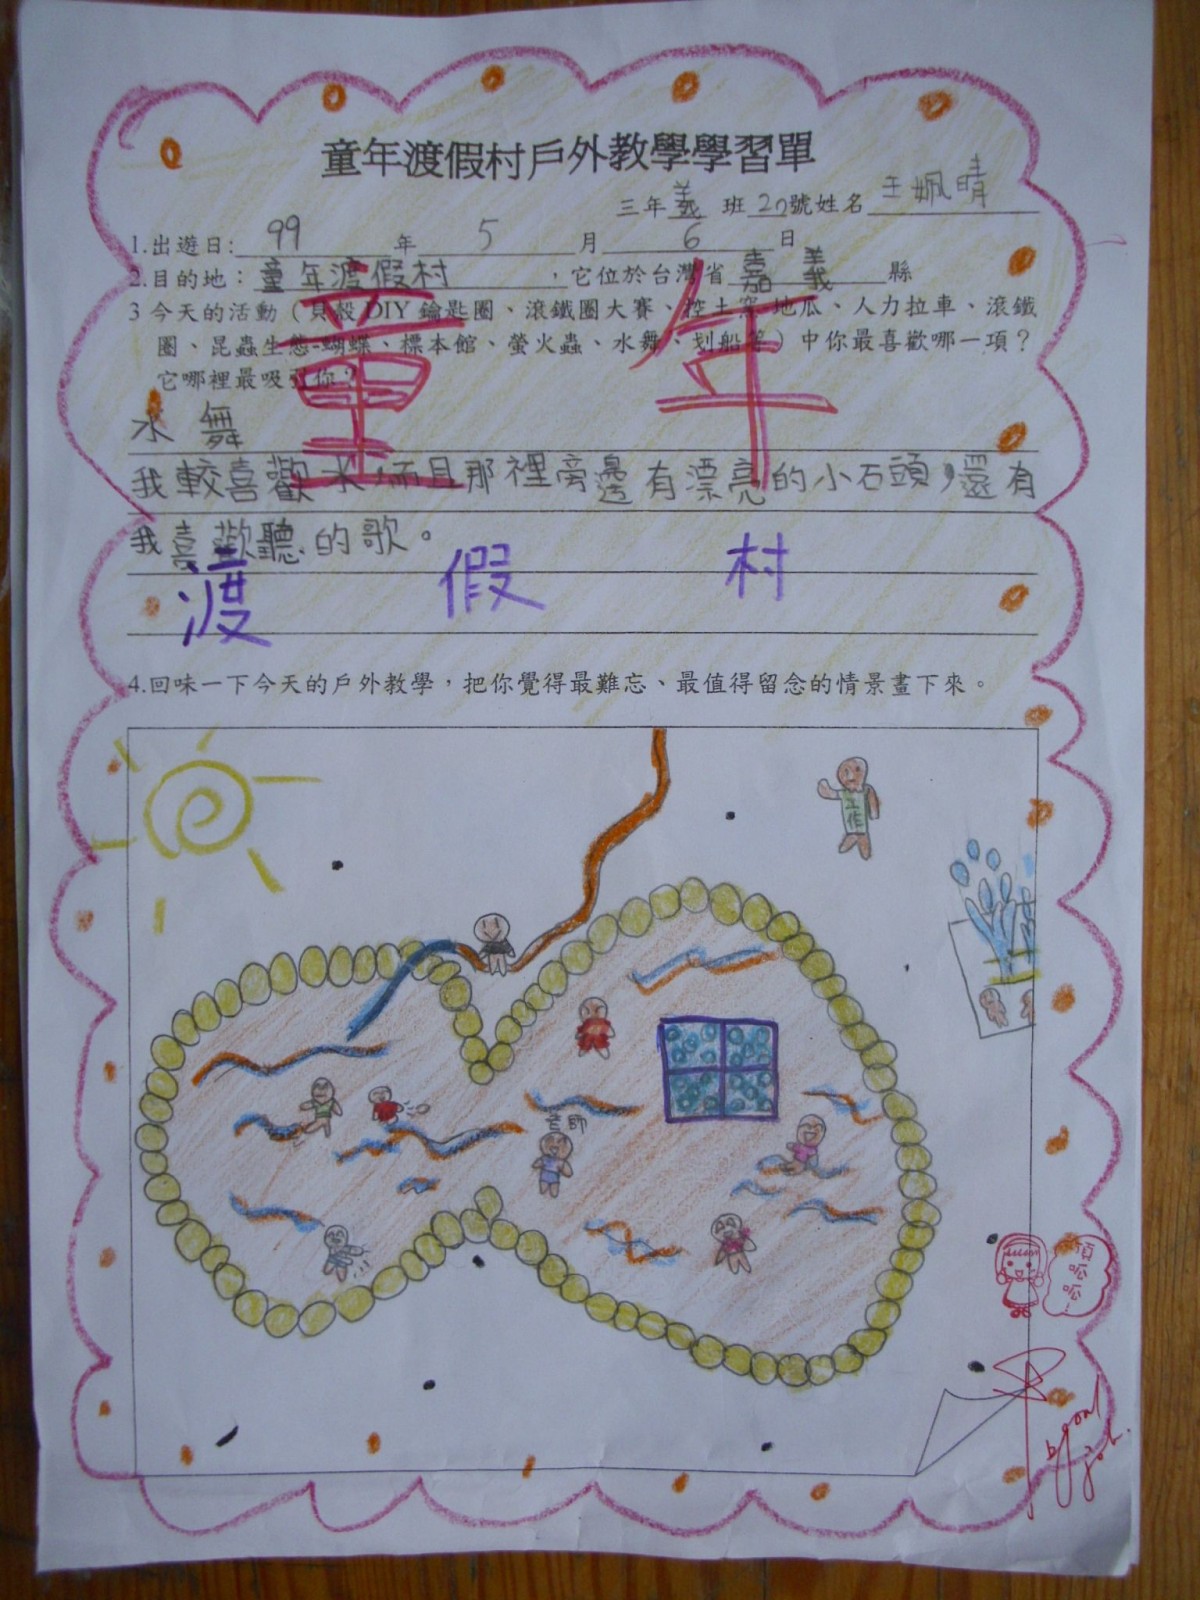 童年渡假村戶外教學學習單
三年義班20號姓名王姵晴
1.出遊日:99年5月6日
2.目的地:童年渡假村,它位於台灣省嘉義縣
3今天的活動(貝殼DIY鑰匙圈、滾鐵圈大賽、控土窯-地瓜、人力拉車、滾鐵
圈、昆蟲生態-蝴蝶、標本館、螢火蟲、水舞、划船等)中你最喜歡哪一項?
它哪裡最吸引你?
童年
水舞
我較喜歡水,而且那裡旁邊有漂亮的小石頭,還有
我喜歡聽的歌。
渡假村
4.回味一下今天的戶外教學,把你覺得最難忘、最值得留念的情景畫下來。
工作
老師
頂呱呱...
good
job.